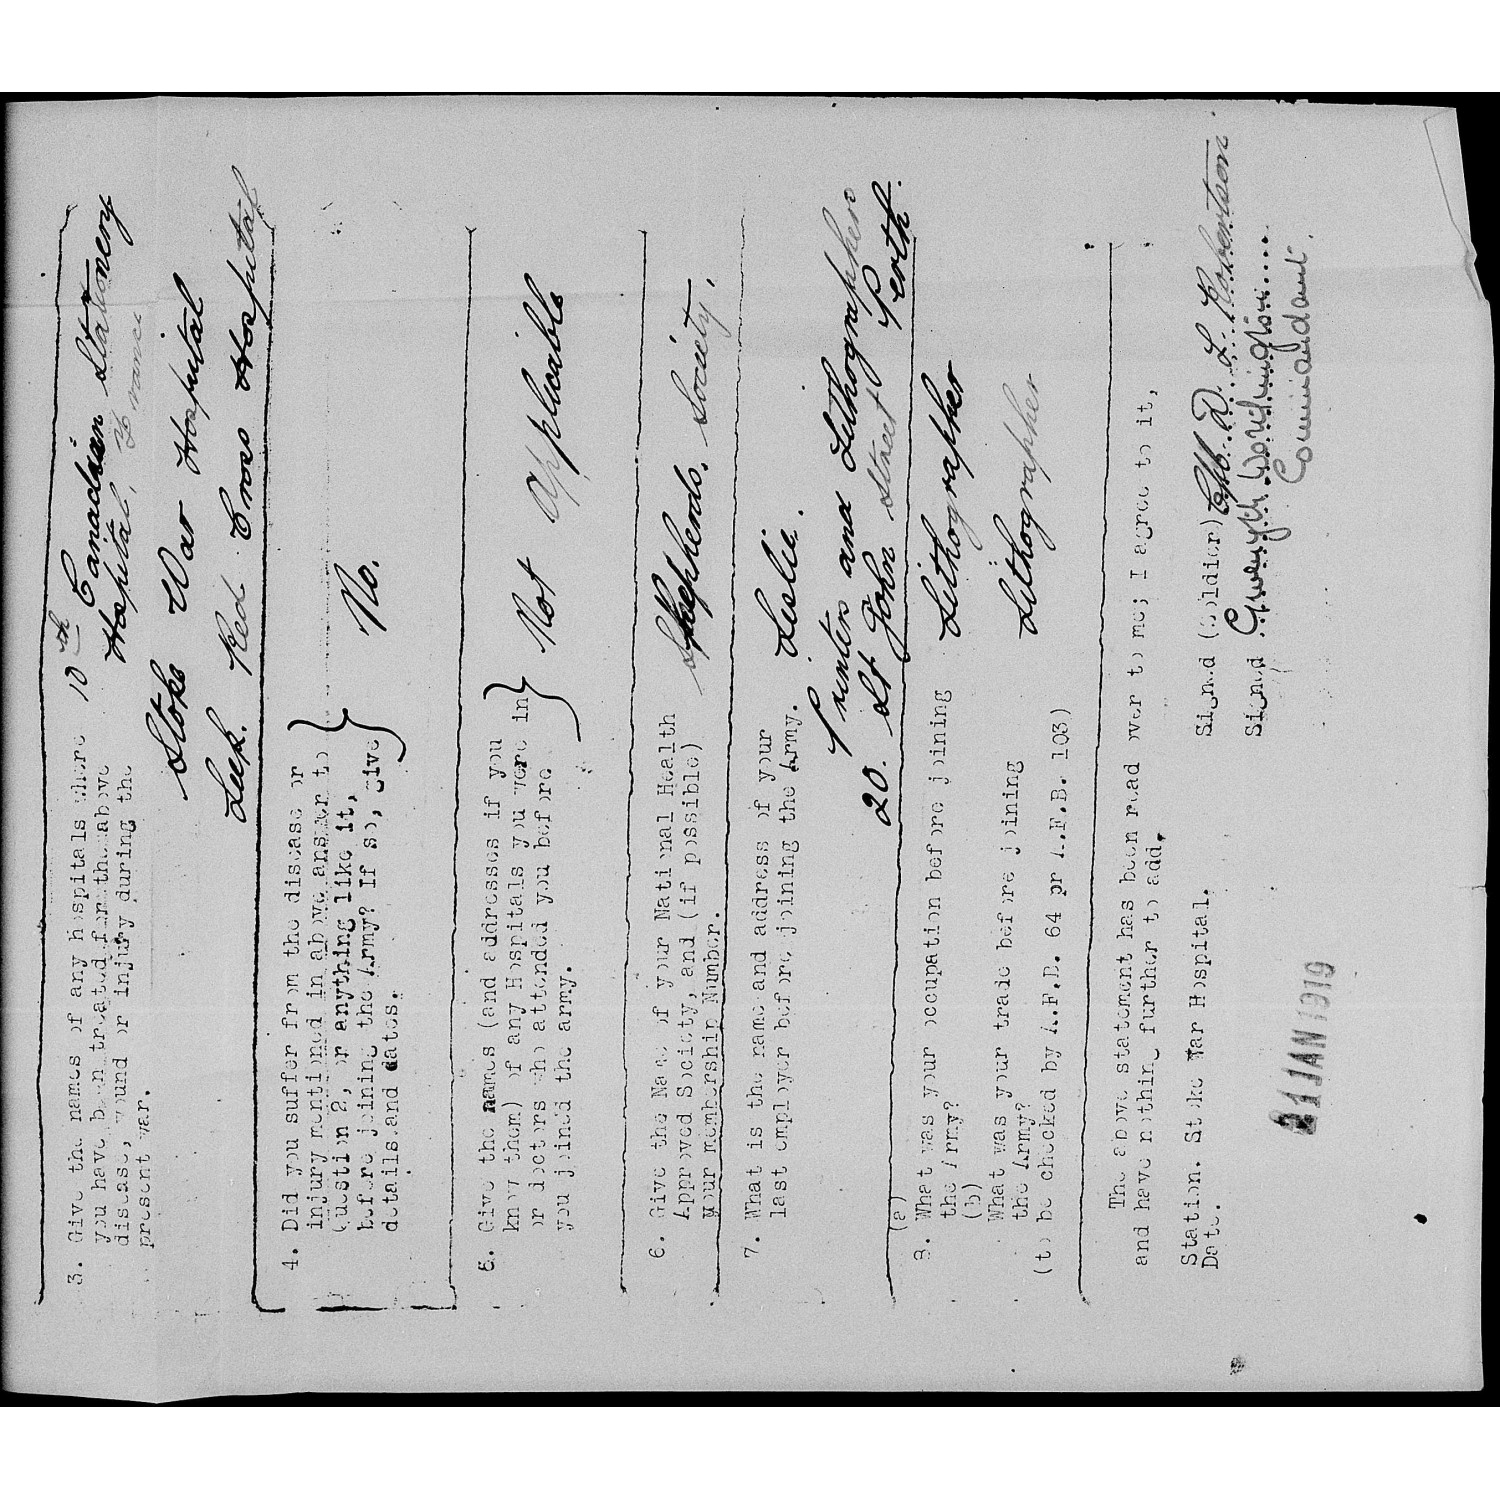 3. Give the names of any hospitals where 10th Canadian Stationery
you have been treated for the above Hospital, France
disease, wound or injury during the Stoke War Hospital
present war. Leek. Red Cross Hospital
4. Did you suffer from the disease or
injury mentioned in above answer to
Question 2, or anything like it, No.
before joining the Army? If so, give
details and dates.
5. Give the names (and addresses if you
know them) of any Hospitals you were in Not applicable
or doctors who attended you before
you joined the army.
6. Give the Name of your National Health Shepherds. Society.
Approved Society, and (if possible)
your membership Number.
7. What is the name and address of your Leslie.
last employer before joining the Army. Printers and Lithographers
20. St John Street Perth.
(a)
8. What was your occupation before joining Lithographer
the Army?
(b)
What was your trade before joining Lithographer
the Army?
(to be checked by A.F.B. 64 or A.F.B. 103)
The above statement has been read over to me; I agree to it,
and have nothing further to add.
Station. Stoke War Hospital. Signed (Soldier) D. L. Robertson
Date. Signed
Commandant.
21 JAN 1919